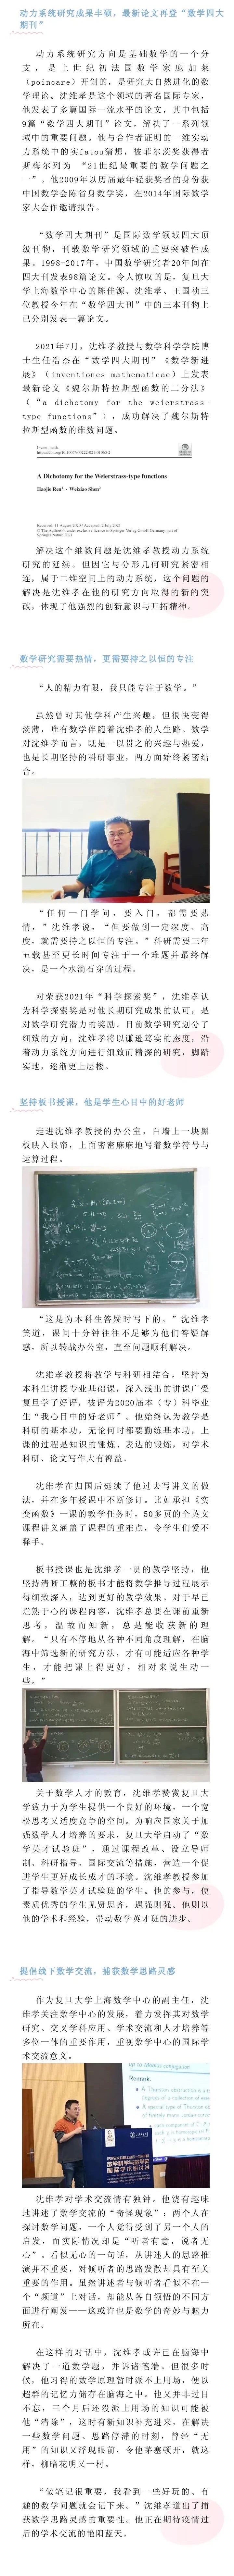 动力系统研究成果丰硕，最新论文再登“数学四大
期刊”
动力系统研究方向是基础数学的一个分
支，是上世纪初法国数学家庞加莱
（poincare）开创的，是研究大自然进化的数
学理论。沈维孝是这个领域的著名国际专家，
他发表了多篇国际一流水平的论文，其中包括
9篇“数学四大期刊”论文，解决了一系列领
域中的重要问题。他与合作者证明的一维实动
力系统中的实fatou猜想，被菲尔茨奖获得者
斯梅尔列为 “21世纪最重要的数学问题之
一”。他2009年以历届最年轻获奖者的身份获
中国数学会陈省身数学奖，在2014年国际数学
家大会作邀请报告。
“数学四大期刊”是国际数学领域四大顶
级刊物，刊载数学研究领域的重要突破性成
果。1998-2017年，中国数学研究者20年间在
四大刊发表98篇论文。令人惊叹的是，复旦大
学上海数学中心的陈佳源、沈维孝、王国祯三
位教授今年在“数学四大刊”中的三本刊物上
已分别发表一篇论文。
2021年7月，沈维孝教授与数学科学学院博
士生任浩杰在“数学四大期刊”《数学新进
展》（inventiones mathematicae）上发表
最新论文《魏尔斯特拉斯型函数的二分法》
（“a dichotomy for the weierstrass-
type functions”），成功解决了魏尔斯特
拉斯型函数的维数问题。
Invent. math.
https://doi.org/10.1007/s00222-021-01060-2
A Dichotomy for the Weierstrass-type functions
Haojie Ren · Weixiao Shen
Received: 11 August 2020 / Accepted: 2 July 2021
© The Author(s), under exclusive licence to Springer-Verlag GmbH Germany, part of
Springer Nature 2021
解决这个维数问题是沈维孝教授动力系统
研究的延续。但因它与分形几何研究紧密相
连，属于二维空间上的动力系统，这个问题的
解决是沈维孝在他的研究方向取得的新的突
破，体现了他强烈的创新意识与开拓精神。
数学研究需要热情，更需要持之以恒的专注
“人的精力有限，我只能专注于数学。”
虽然曾对其他学科产生兴趣，但很快变得
淡薄，唯有数学伴随着沈维孝的人生路。数学
对沈维孝而言，既是一以贯之的兴趣与热爱，
也是长期坚持的科研事业，两方面始终紧密结
合。
“任何一门学问，要入门，都需要热
情，”沈维孝说，“但要做到一定深度、高
度，就需要持之以恒的专注。”科研需要三年
五载甚至更长时间专注于一个难题并最终解
决，是一个水滴石穿的过程。
对荣获2021年“科学探索奖”，沈维孝认
为科学探索奖是对他长期研究成果的认可，是
对数学研究潜力的奖励。目前数学研究划分了
细致的方向，沈维孝将以谦逊笃实的态度，沿
着动力系统方向进行细致而精深的研究，脚踏
实地，逐渐更上层楼。
坚持板书授课，他是学生心目中的好老师
走进沈维孝教授的办公室，白墙上一块黑
板映入眼帘，上面密密麻麻地写着数学符号与
运算过程。
“这是为本科生答疑时写下的。”沈维孝
笑道，课间十分钟往往不足够为他们答疑解
惑，所以转战办公室，直至问题顺利解决。
沈维孝教授将教学与科研相结合，坚持为
本科生讲授专业基础课，深入浅出的讲课广受
复旦学子好评，被评为2020届本（专）科毕业
生“我心目中的好老师”。他始终认为教学是
科研的基本功，无论何时都要勤练基本功，上
课的过程是知识的锤炼、表达的锻炼，对学术
科研、论文写作大有裨益。
沈维孝在归国后延续了他过去写讲义的做
法，并在多年授课中不断修订。比如承担《实
变函数》一课的教学任务时，50多页的全英文
课程讲义涵盖了课程的重难点，令学生们爱不
释手。
板书授课也是沈维孝一贯的教学坚持，他
坚持清晰工整的板书才能将数学推导过程展示
得细致深入，达到更好的教学效果。对于早已
烂熟于心的课程内容，沈维孝总要在课前重新
思考，温故而知新，总是能收获新的理
解。“只有不停地从各种不同角度理解，在脑
海中筛选新的研究方法，才有可能适应各种学
生，才能把课上得更好，相对来说生动一
些。”
关于数学人才的教育，沈维孝赞赏复旦大
学致力于为学生提供一个良好的环境，一个宽
松思考又适度竞争的空间。为响应国家关于加
强数学人才培养的要求，复旦大学启动了“数
学英才试验班”，通过课程改革、设立导师
制、科研指导、国际交流等措施，营造一个促
进学生更好成长成才的环境。沈维孝教授参加
了指导数学英才试验班的学生。他的参与，使
素质优秀的学生见贤思齐，遇强则强。他则以
他的学术和经验，带动数学英才班的进步。
提倡线下数学交流，捕获数学思路灵感
作为复旦大学上海数学中心的副主任，沈
维孝关注数学中心的发展，着力发挥其对数学
研究、交叉学科应用、学术交流和人才培养等
多位一体的重要作用，重视数学中心的国际学
术交流意义。
up to obvious conjugation
Remark.
沈维孝对学术交流情有独钟。他饶有趣味
地讲述了数学交流的“奇怪现象”：两个人在
探讨数学问题，一个人觉得受到了另一个人的
启发，而实际情况却是“听者有意，说者无
心”。看似无心的一句话，从讲述人的思路推
演并不重要，对倾听者的思路发散却具有至关
重要的作用。虽然讲述者与倾听者看似不在一
个“频道”上对话，却能从各自领悟的不同方
面进行阐发——这或许也是数学的奇妙与魅力
所在。
在这样的对话中，沈维孝或许已在脑海中
解决了一道数学题，并诉诸笔端。但很多时
候，他习得的数学原理暂时派不上用场，便以
超群的记忆力储存在脑海之中。他又并非过目
不忘，三个月后还没派上用场的知识可能被
他“清除”，这时有新知识补充进来，在解决
一些数学问题、思路停滞的时刻，曾经“无
用”的知识又浮现眼前，令他茅塞顿开，就这
样，柳暗花明又一村。
“做笔记很重要，我看到一些好玩的、有
趣的数学问题就会记下来。”沈维孝道出了捕
获数学思路灵感的重要性。他正在期待疫情过
后的学术交流的艳阳蓝天。